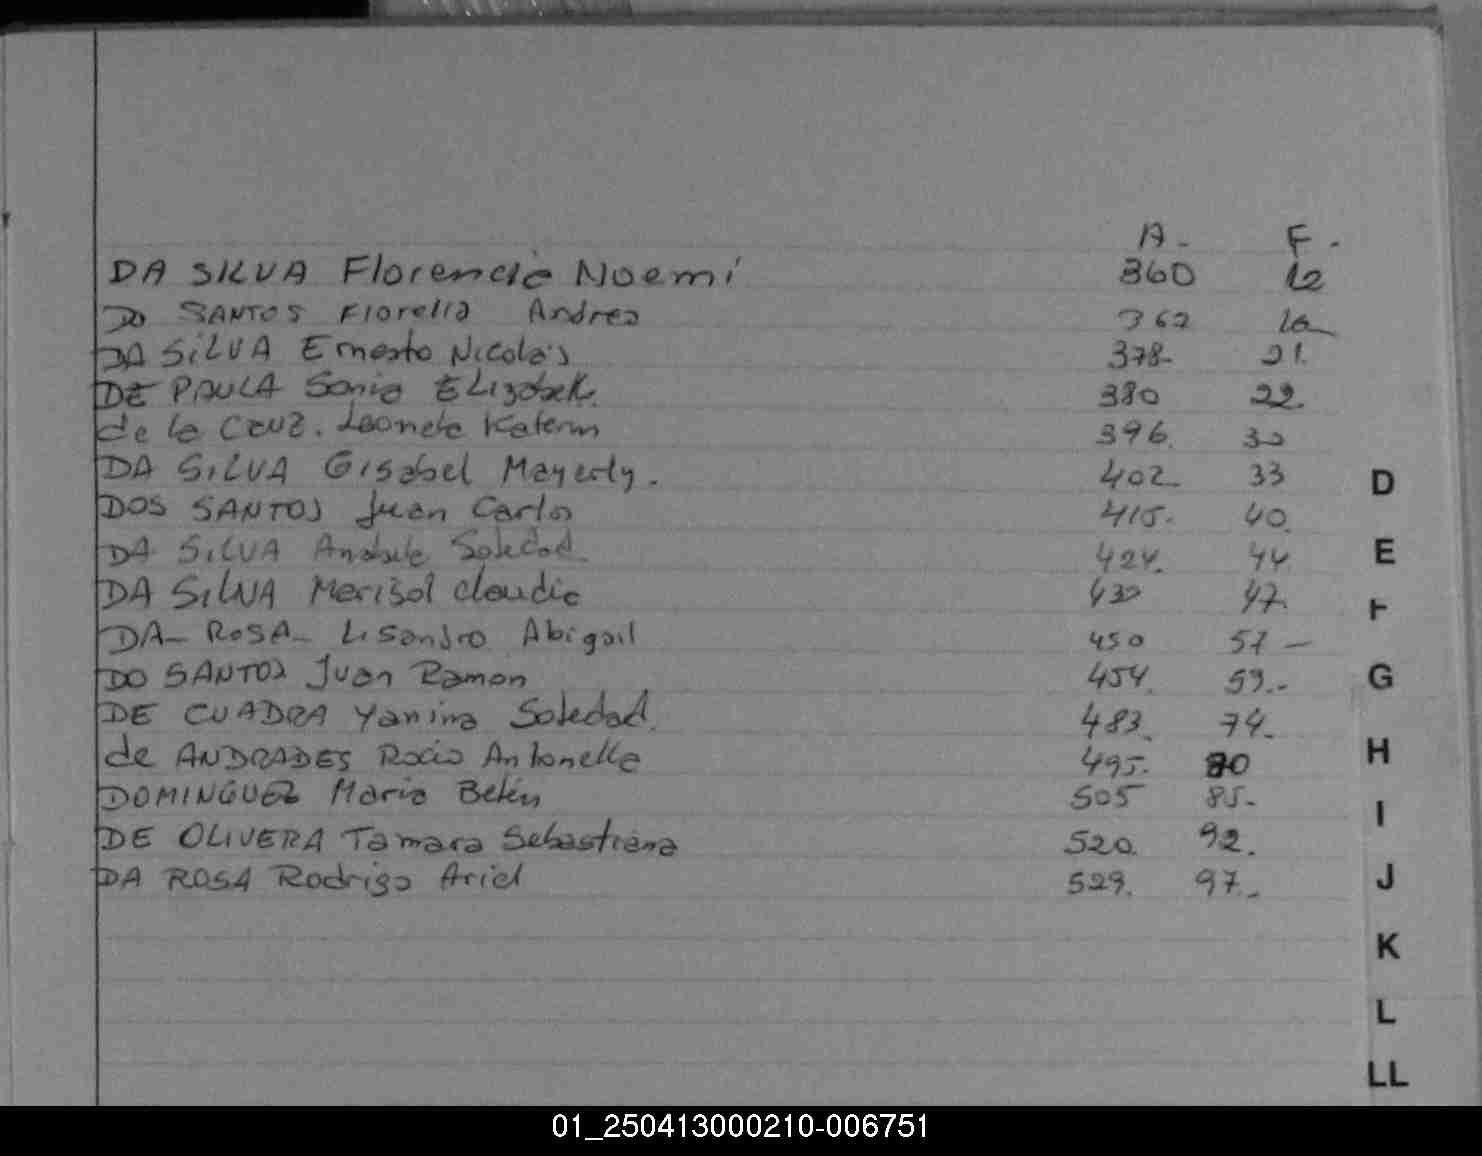 A. F.
DA SILVA Florencia Noemí 360 12
DO SANTOS Fiorella Andrea 362
DA SILVA Ernesto Nicolás 378 21.
DE PAULA Sonia ELizabeth 380 22.
de la CRUZ. Leonela Katerin 396. 30
DA SILVA Gisabel Mayerly. 402 33
DOS SANTOS Juan Carlos 415. 40.
DA SILVA Anabela Soledad 424. 44
DA SILVA Marisol Claudia 430 47.
DA ROSA Lisandro Abigail 450 57 -
DO SANTOS Juan Ramon 454. 59.-
DE CUADRA Yanina Soledad. 483. 74.
de ANDRADES Rocio Antonella 495. 80
DOMINGUEZ Maria Belén 505 85.
DE OLIVERA Tamara Sebastiana 520. 92.
DA ROSA Rodrigo Ariel 529. 97.
D
E
F
G
H
I
J
K
L
LL
01_250413000210-006751